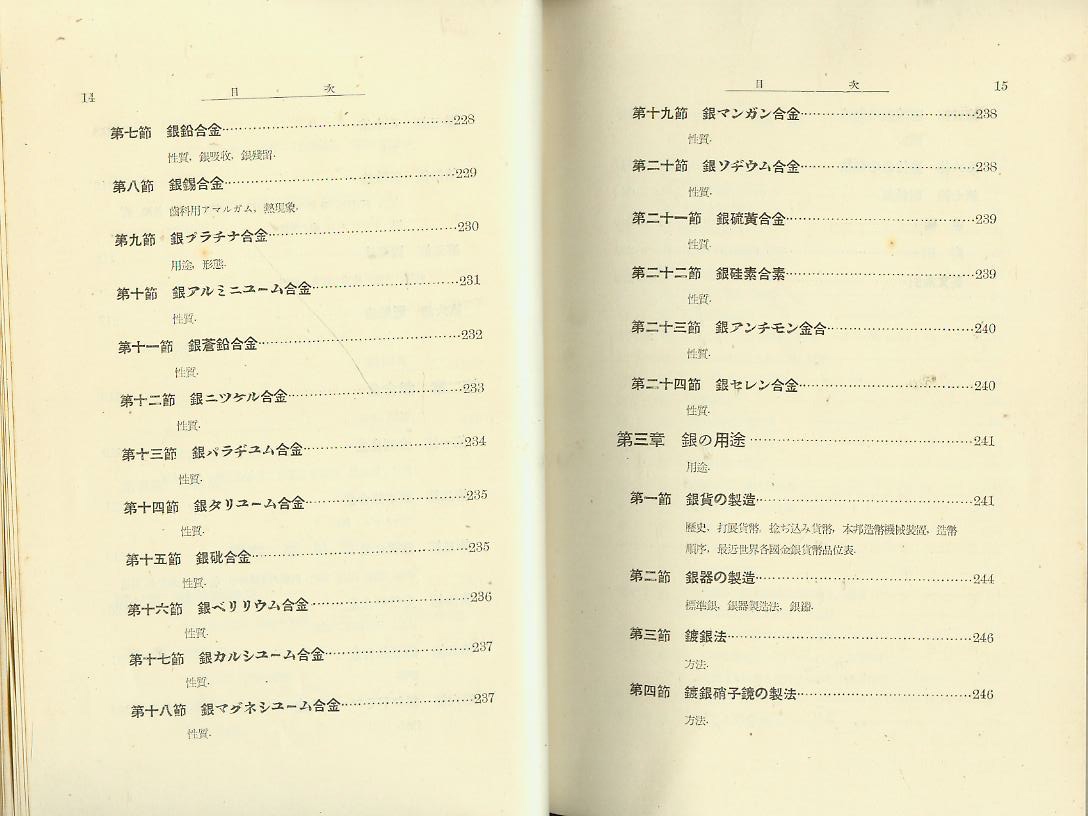 14 目次
第七節 銀鉛合金……228
性質, 銀吸收, 銀殘留.
第八節 銀錫合金……229
齒科用アマルガム, 熱現象.
第九節 銀プラチナ合金……230
用途, 形態.
第十節 銀アルミニユーム合金……231
性質.
第十一節 銀蒼鉛合金……232
性質.
第十二節 銀ニツケル合金……233
性質.
第十三節 銀パラヂユム合金……234
性質.
第十四節 銀タリユーム合金……235
性質.
第十五節 銀砒合金……235
性質.
第十六節 銀ベリリウム合金……236
性質.
第十七節 銀カルシユーム合金……237
性質.
第十八節 銀マグネシユーム合金……237
性質.
目次 15
第十九節 銀マンガン合金……238
性質.
第二十節 銀ソヂウム合金……238
性質.
第二十一節 銀硫黃合金……239
性質.
第二十二節 銀硅素合素……239
性質.
第二十三節 銀アンチモン金合……240
性質.
第二十四節 銀セレン合金……240
性質.
第三章 銀の用途……241
用途.
第一節 銀貨の製造……241
歷史, 打展貨幣, 捻ぢ込み貨幣, 本邦造幣機械裝置, 造幣
順序, 最近世界各國金銀貨幣品位表.
第二節 銀器の製造……244
標準銀, 銀器製造法, 銀鑞.
第三節 鍍銀法……246
方法.
第四節 鍍銀硝子鏡の製法……246
方法.